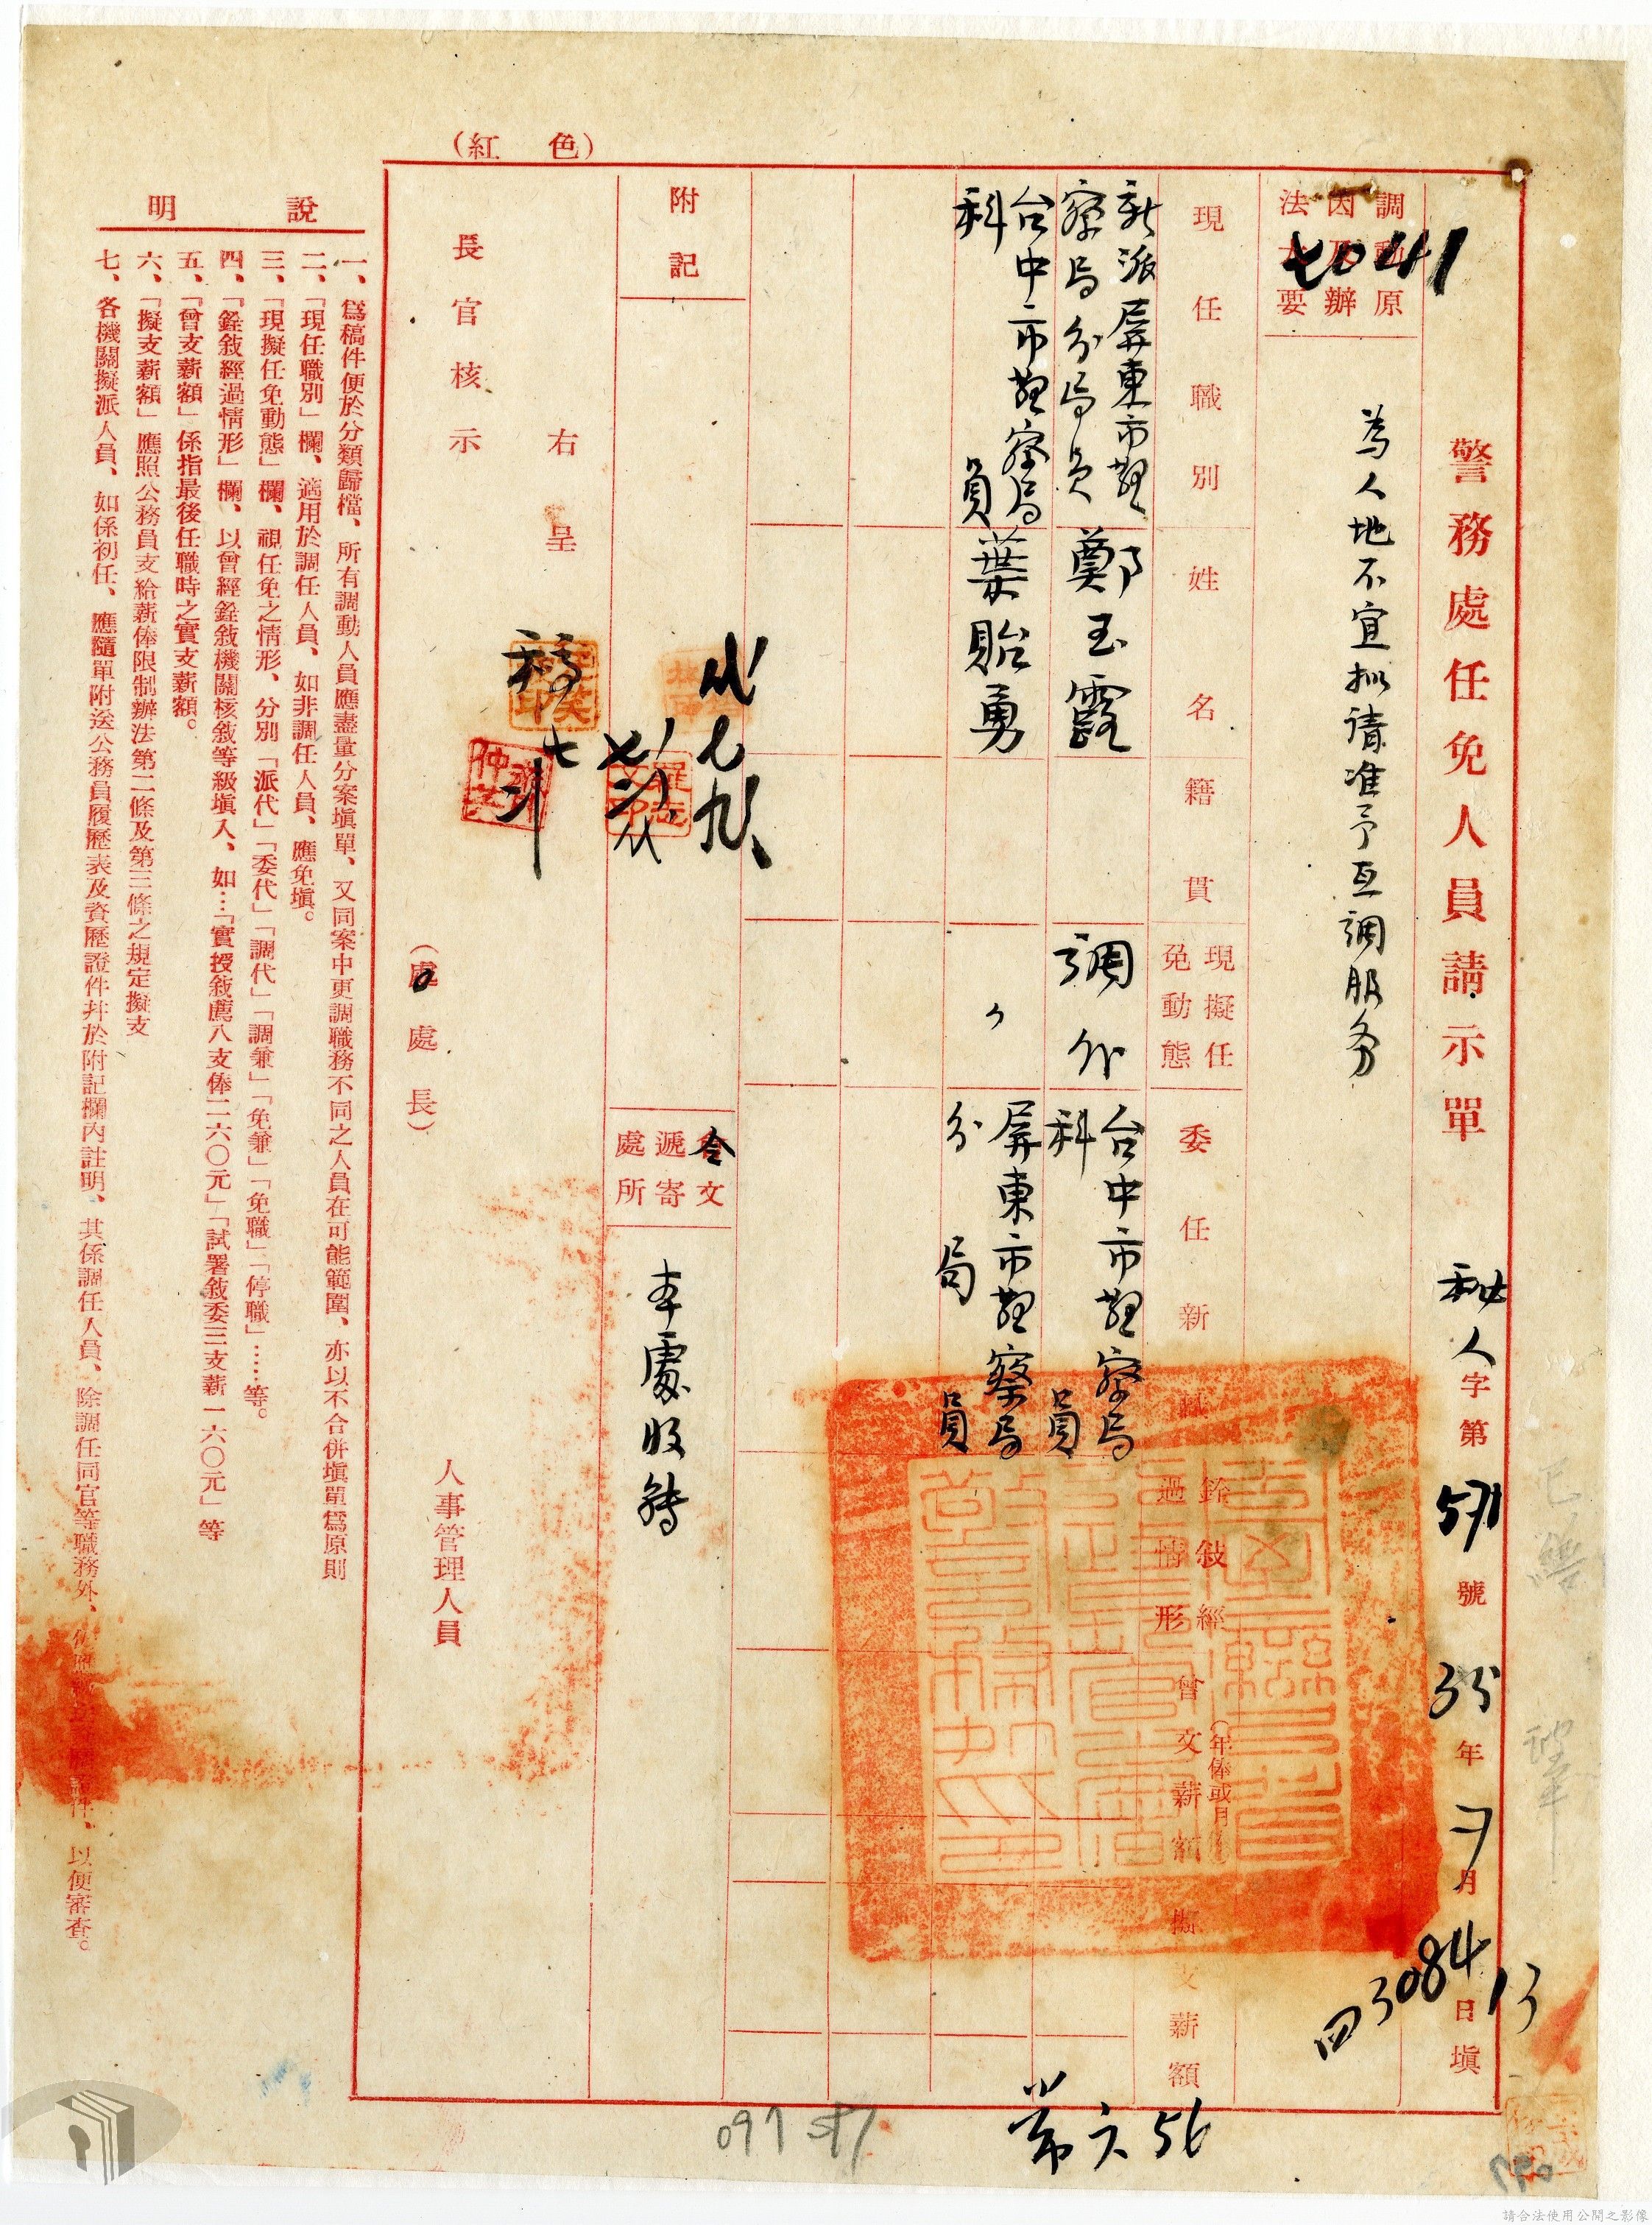 (紅色)
警務處任免人員請示單
秘人字第571號
35年 月 日填
調動原因及辦法大要
為人地不宜擬請准予互調服务
現任職別
姓名
籍貫
現擬任免動態
委任新職
銓敍經過情形
曾支薪額
(年俸或月俸)
擬支薪額
新派屏東市警察局分局員
鄭玉露
調派
台中市警察局科員
台中市警察局科員
葉貽勇
〃
屏東市警察局分局員
附記
令文遞寄處所
本處收轉
右呈
(處處長)
人事管理人員
長官核示
說明
一、爲稿件便於分類歸檔、所有調動人員應盡量分案塡單、又同案中更調職務不同之人員在可能範圍、亦以不合併塡單爲原則
二、「現任職別」欄、適用於調任人員、如非調任人員、應免塡。
三、「現擬任免動態」欄、視任免之情形、分別「派代」「委代」「調代」「調兼」「免兼」「免職」「停職」……等。
四、「銓敍經過情形」欄、以曾經銓敍機關核敍等級塡入、如…「實授敍薦八支俸二六〇元」「試署敍委三支薪一六〇元」等
五、「曾支薪額」係指最後任職時之實支薪額。
六、「擬支薪額」應照公務員支給薪俸限制辦法第二條及第三條之規定擬支
七、各機關擬派人員、如係初任、應隨單附送公務員履歷表及資歷證件幷於附記欄內註明、其係調任人員、除調任同官等職務外、
證件、以便審查。
43084
13
56
097
請合法使用公開之影像